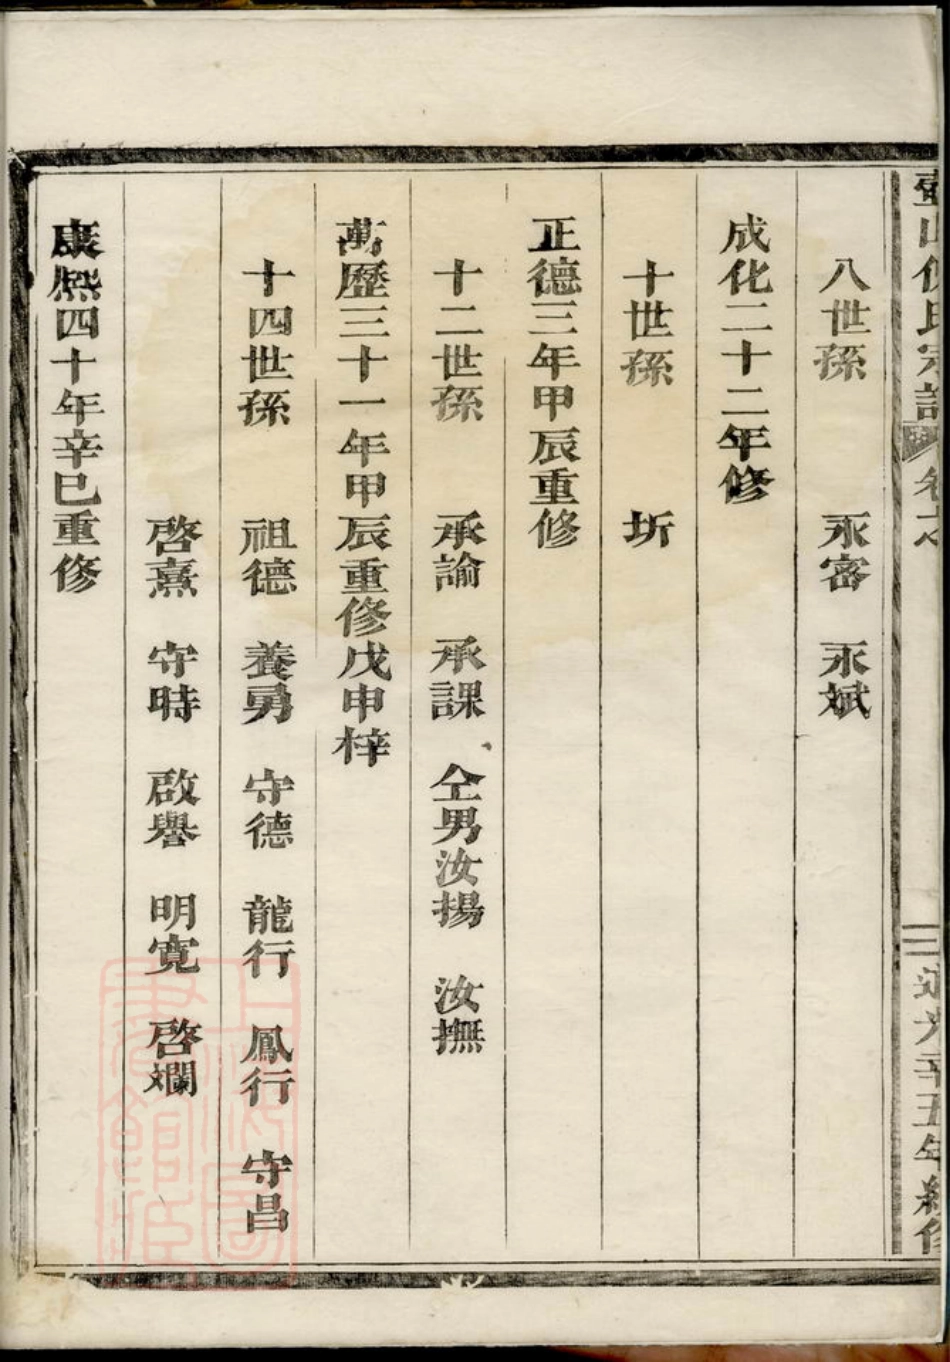 壷山倪氏宗譜 卷之
三 道光辛丑年續修
八世孫 永密 永斌
成化二十二年修
十世孫 圻
正德三年甲辰重修
十二世孫 承諭 承課 仝男汝揚 汝撫
萬歷三十一年甲辰重修戊申梓
十四世孫 祖德 養勇 守德 龍行 鳳行 守昌
啓熹 守時 啟譽 明寬 啓斕
康熙四十年辛巳重修